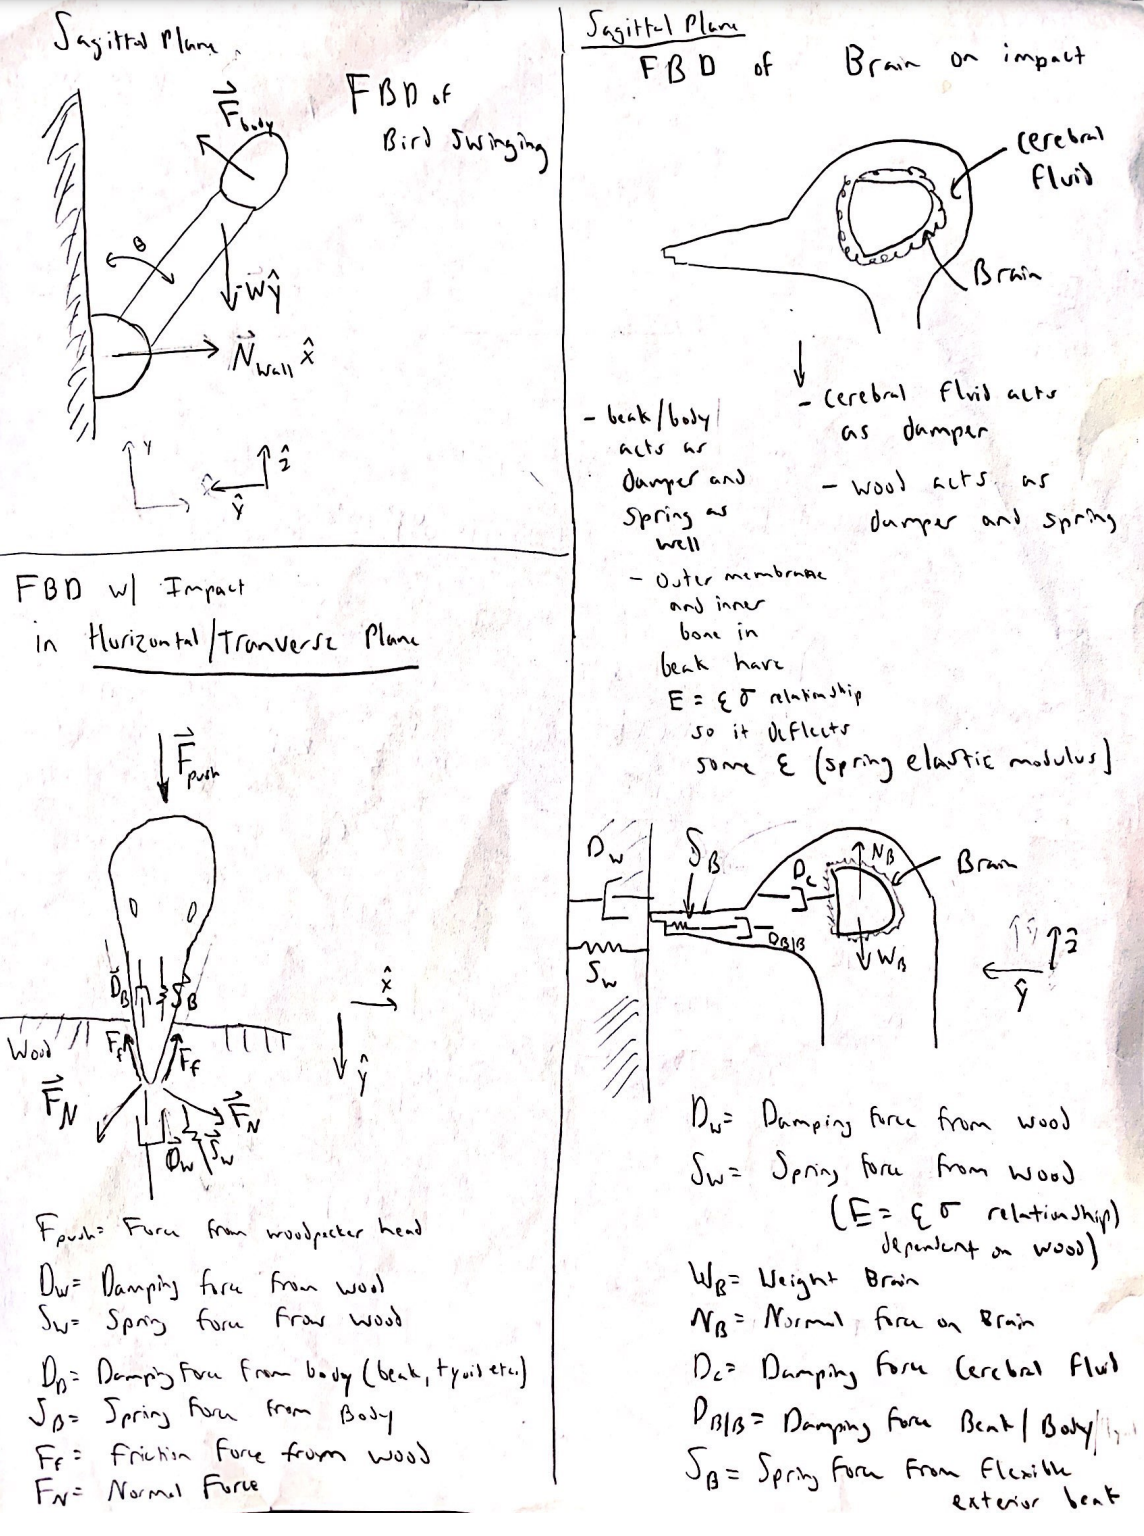 Sagittal Plane
FBD of
Bird Swinging
F body
θ
-Wŷ
N wall x̂
y
ẑ
x̂
ŷ
FBD w/ Impact
in Horizontal/Tranverse Plane
F push
D_B
S_B
x̂
Wood
F_f
F_f
ŷ
F_N
F_N
D_w
S_w
F push = Force from woodpecker head
D_w = Damping force from wood
S_w = Spring force from wood
D_B = Damping force from body (beak, etc.)
S_B = Spring force from Body
F_f = friction force from wood
F_N = Normal Force
Sagittal Plane
FBD of Brain on impact
cerebral
fluid
Brain
- cerebral fluid acts
as damper
- wood acts as
damper and spring
- beak/body
acts as
damper and
spring as
well
- Outer membrane
and inner
bone in
beak have
E = ε σ relationship
so it deflects
some ε (spring elastic modulus)
D_w
S_B
D_c
N_B
Brain
D_B/B
S_w
W_B
ẑ
ŷ
D_w = Damping force from wood
S_w = Spring force from wood
(E = ε σ relationship)
dependent on wood)
W_B = Weight Brain
N_B = Normal force on Brain
D_c = Damping force Cerebral Fluid
D_B/B = Damping force Beak/Body
S_B = Spring force from flexible
exterior beak